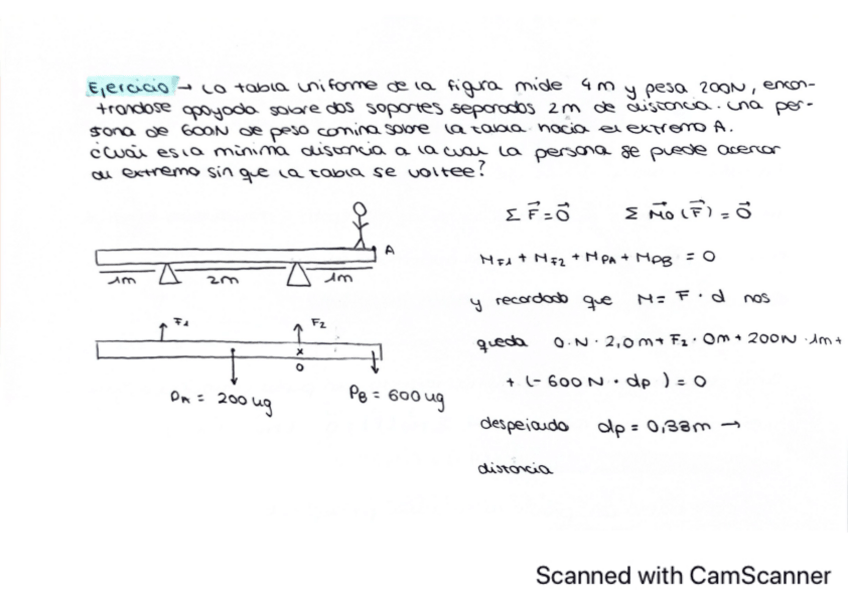 Ejercicio → La tabla uniforme de la figura mide 4m y pesa 200N, encon-
trandose apoyada sobre dos soportes separados 2m de distancia. Una per-
sona de 600N de peso camina sobre la tabla hacia el extremo A.
¿Cuál es la mínima distancia a la cual la persona se puede acercar
al extremo sin que la tabla se voltee?
Σ F⃗ = 0⃗ Σ M⃗o (F⃗) = 0⃗
A
1m 2m 1m
M F1 + M F2 + M PA + M PB = 0
y recordado que M = F · d nos
F1 F2
queda 0·N · 2,0m + F2 · 0m + 200N · 1m +
x
o
+ (-600N · dp) = 0
PA = 200 ug PB = 600 ug
despejando dp = 0,33m →
distancia
Scanned with CamScanner